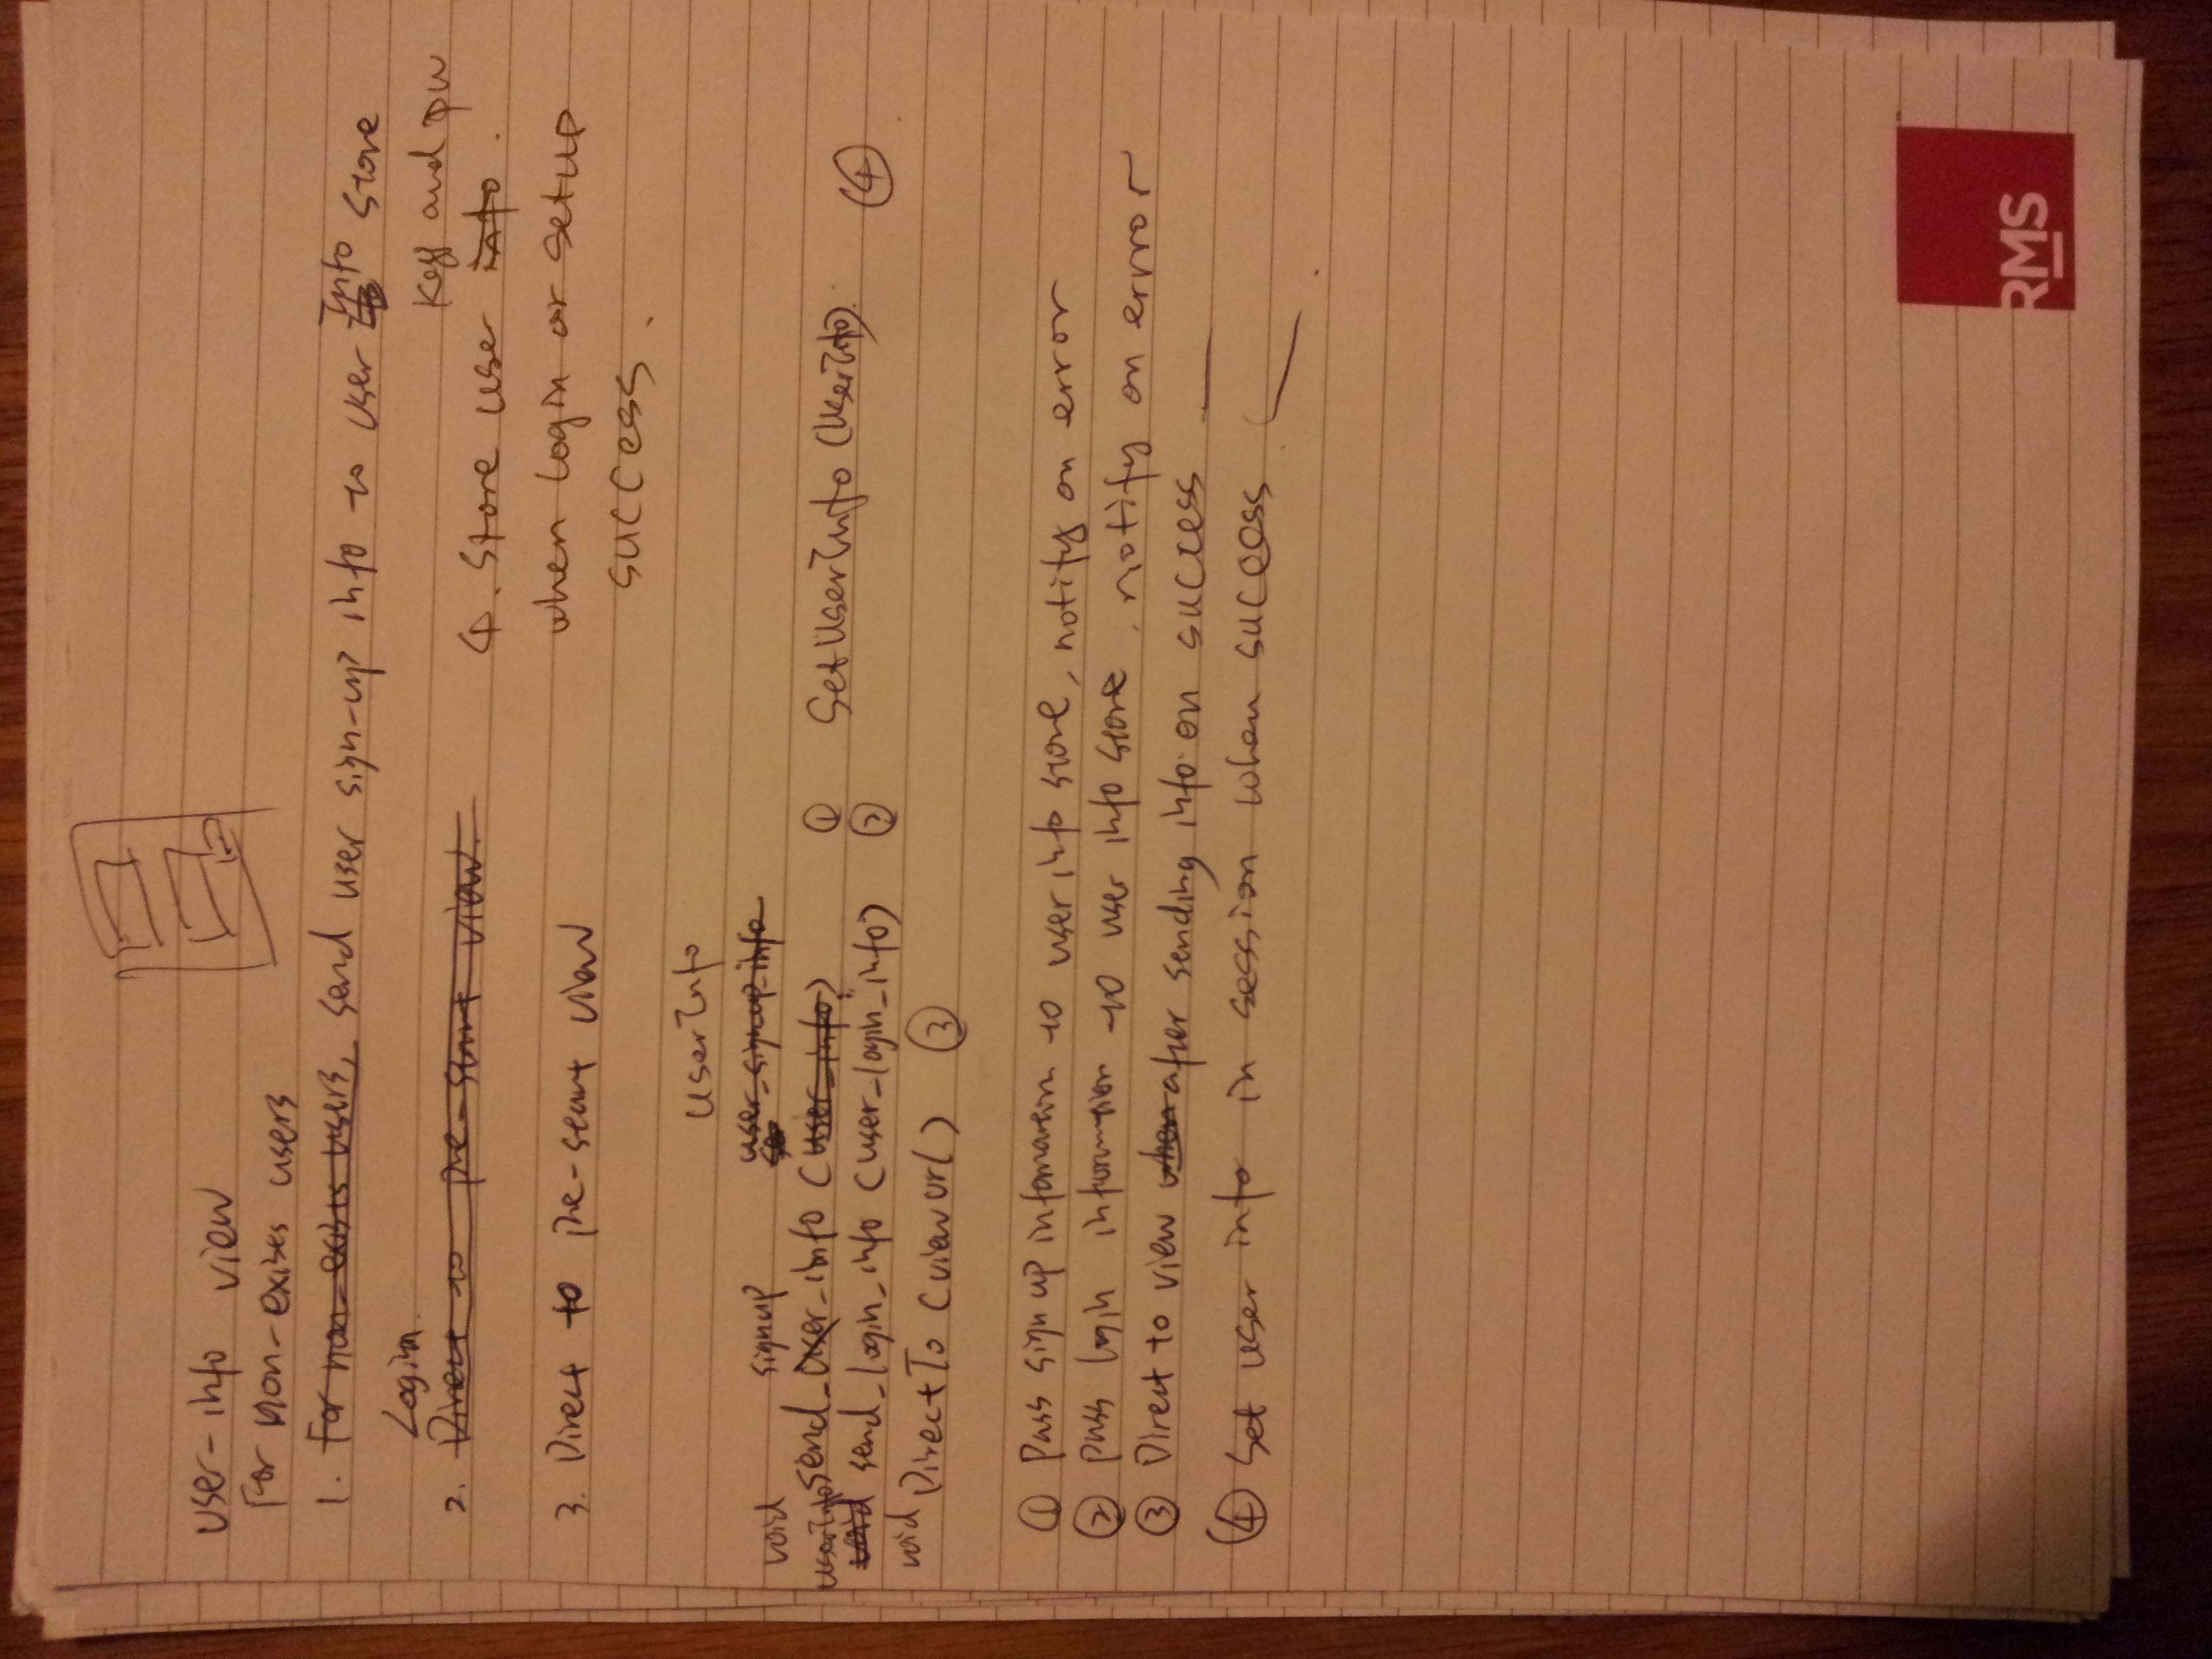 user-info view
For non-exises users
1. For non-exists users, send user sign-up info to user Info store
Login.
2. Direct to pre-start view.
3. Direct to pre-start view
key and pw
4. Store user info.
when login or setup
success.
UserInfo
user_signup_info
void signup
send_user_info (user_info) ① SetUserInfo (UserInfo). ④
UserInfo
void send_login_info (user_login_info) ②
void DirectTo (viewurl) ③
① Pass sign up infomation to user info store, notify on error
② pass login information to user info store, notify on error
③ Direct to view when after sending info on success
④ Set user info in session when success.
RMS